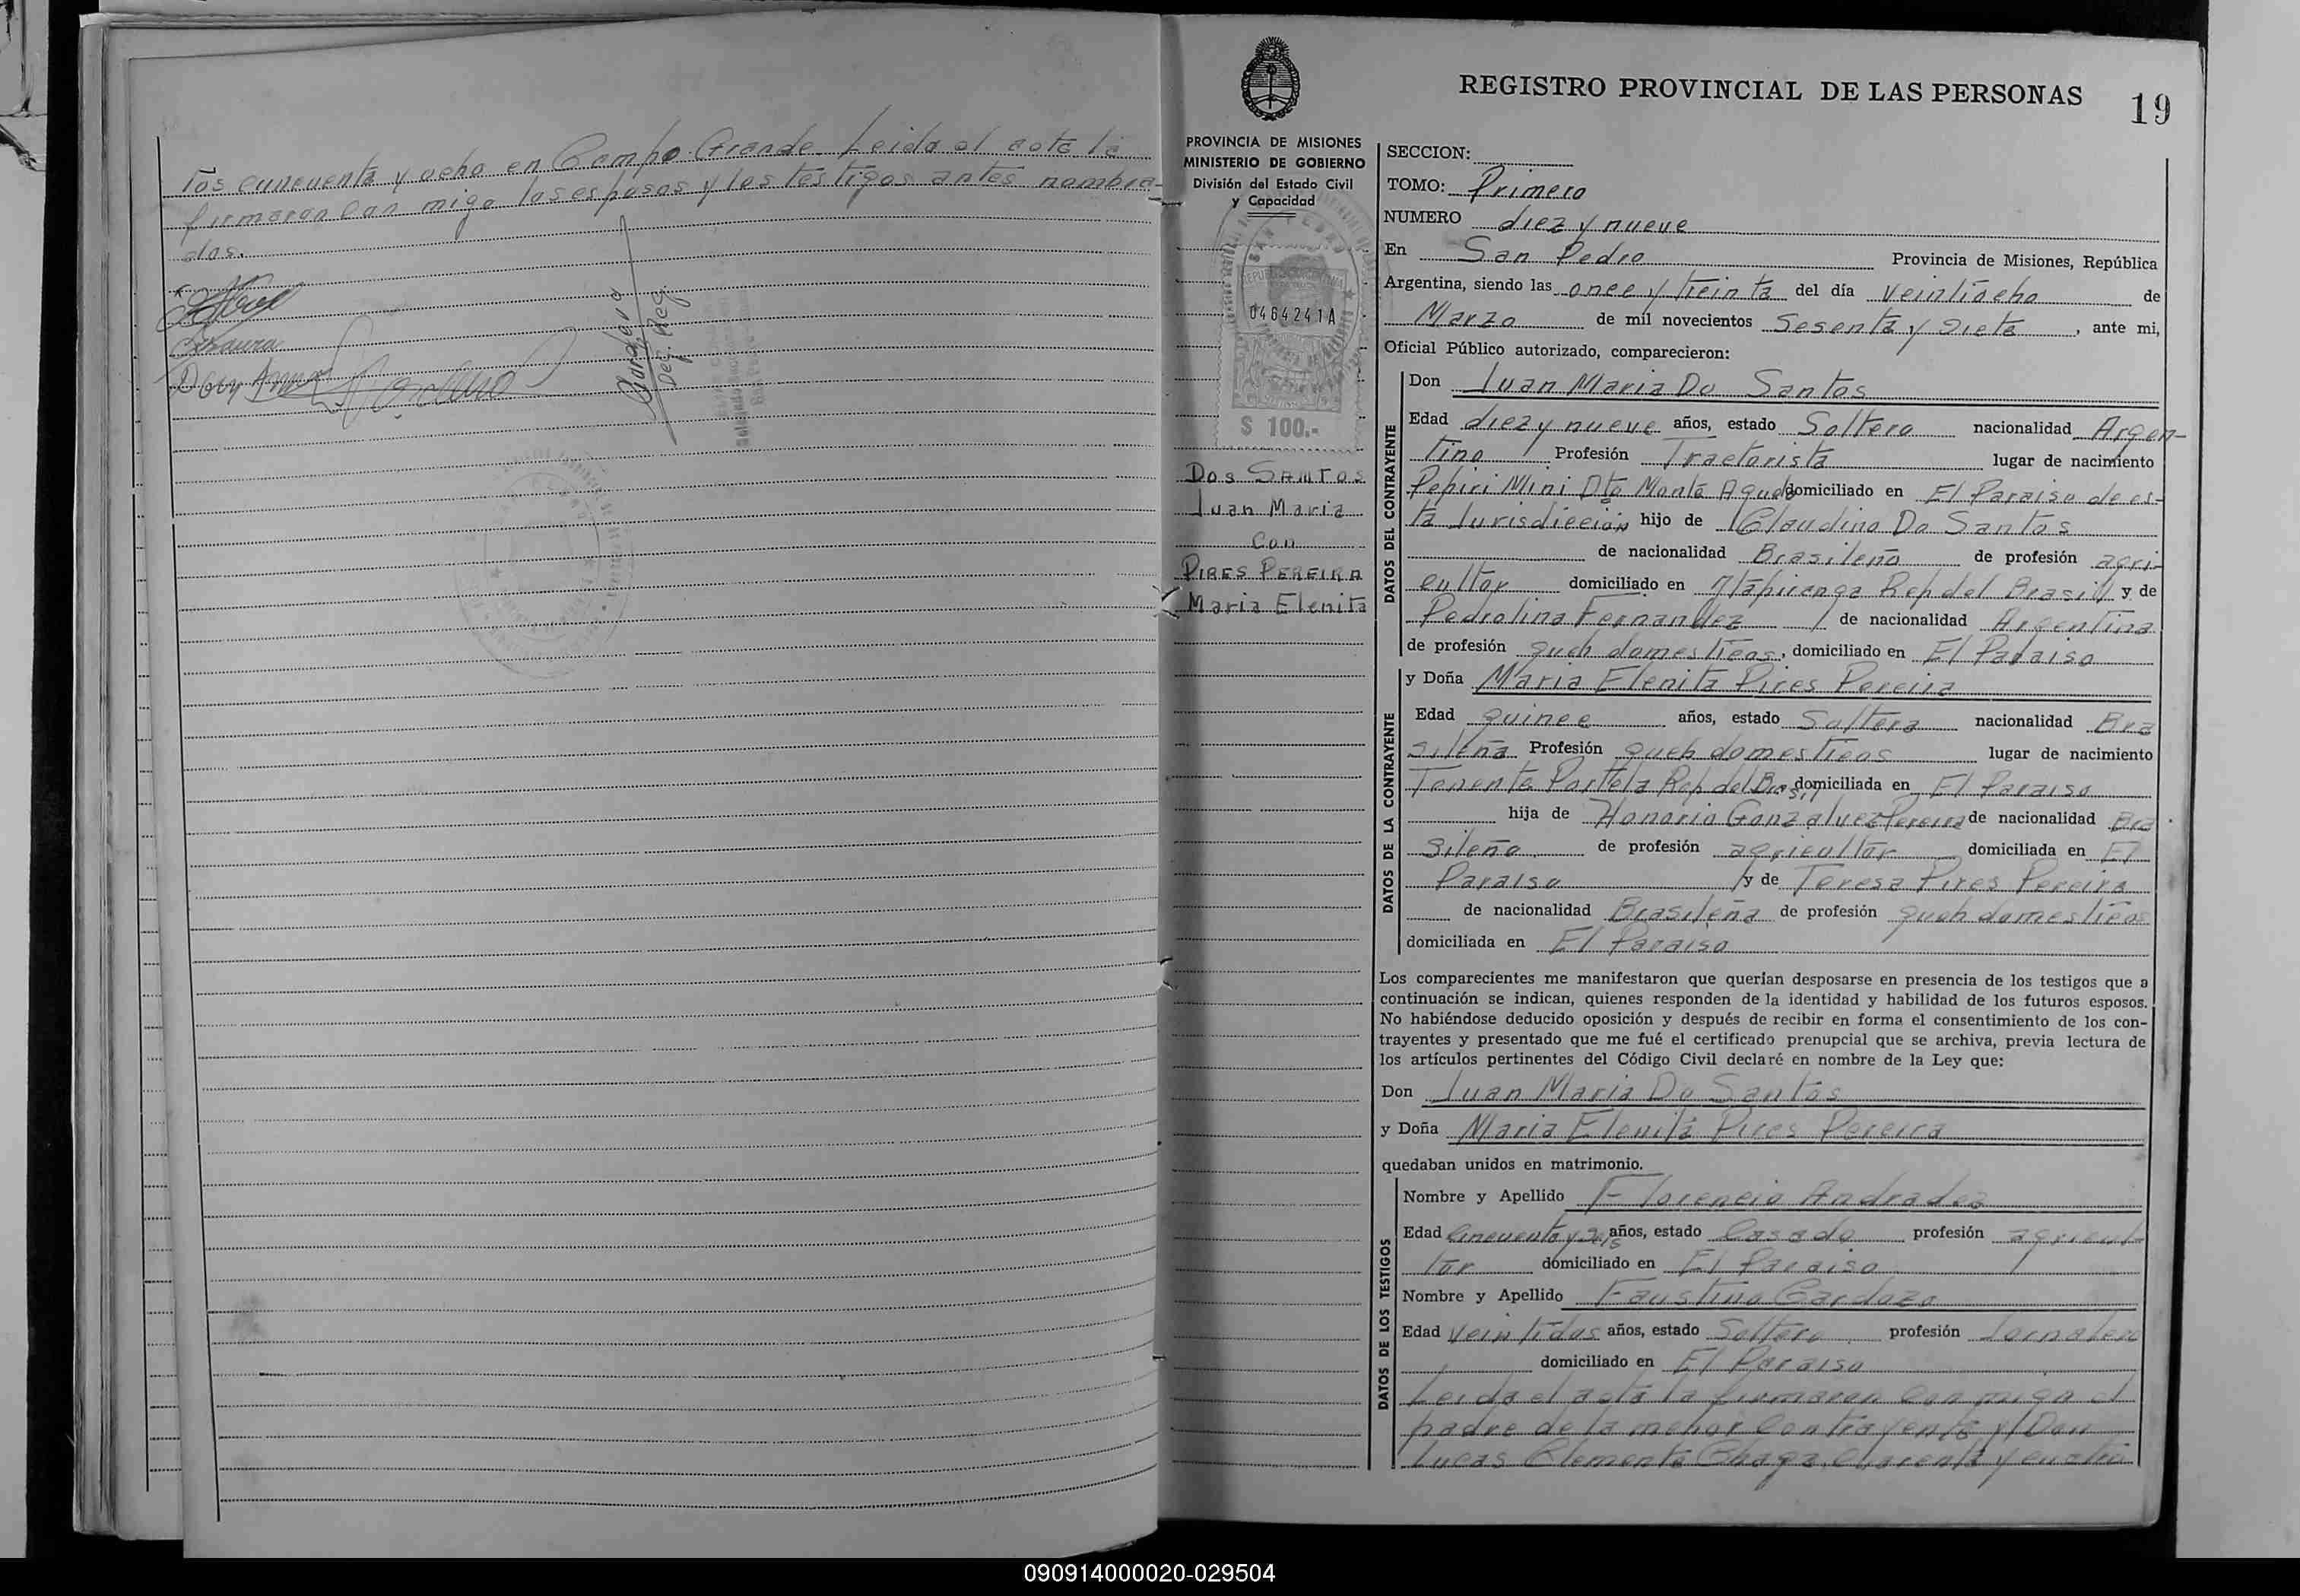 tos cincuenta y ocho en Campo Grande. Leida el acta la
firmaron con migo los esposos y los testigos antes nombra-
dos.
REGISTRO PROVINCIAL DE LAS PERSONAS
19
PROVINCIA DE MISIONES
MINISTERIO DE GOBIERNO
División del Estado Civil
y Capacidad
SAN PEDRO
0464241A
$ 100.-
DOS SANTOS
Juan Maria
Con
PIRES PEREIRA
Maria Elenita
SECCION:
TOMO: Primero
NUMERO diez y nueve
En San Pedro Provincia de Misiones, República
Argentina, siendo las once y treinta del día veintiocho de
Marzo de mil novecientos Sesenta y Siete, ante mi,
Oficial Público autorizado, comparecieron:
DATOS DEL CONTRAYENTE
Don Juan Maria Do Santos
Edad diez y nueve años, estado Soltero nacionalidad Argen-
tino Profesión Tractorista lugar de nacimiento
Pepiri Mini Dto Monte Agudo domiciliado en El Paraiso de es-
ta Jurisdicción hijo de Claudino Do Santos
de nacionalidad Brasileño de profesión agri-
cultor domiciliado en Itapiranga Rep del Brasil y de
Pedrolina Fernandez de nacionalidad Argentina
de profesión queh domesticos, domiciliado en El Paraiso
DATOS DE LA CONTRAYENTE
y Doña Maria Elenita Pires Pereira
Edad quince años, estado Soltera nacionalidad Bra
sileña Profesión queh domesticos lugar de nacimiento
Tenente Portela Rep del Brasil domiciliada en El Paraiso
hija de Honorio Gonzalvez Pereira de nacionalidad Bra
sileño de profesión agricultor domiciliada en El
Paraiso y de Teresa Pires Pereira
de nacionalidad Brasileña de profesión queh domesticos
domiciliada en El Paraiso
Los comparecientes me manifestaron que querían desposarse en presencia de los testigos que a
continuación se indican, quienes responden de la identidad y habilidad de los futuros esposos.
No habiéndose deducido oposición y después de recibir en forma el consentimiento de los con-
trayentes y presentado que me fué el certificado prenupcial que se archiva, previa lectura de
los artículos pertinentes del Código Civil declaré en nombre de la Ley que:
Don Juan Maria Do Santos
y Doña Maria Elenita Pires Pereira
quedaban unidos en matrimonio.
DATOS DE LOS TESTIGOS
Nombre y Apellido Florencio Andrades
Edad Cincuenta y Seis años, estado Casado profesión agricul-
tor domiciliado en El Paraiso
Nombre y Apellido Faustino Cardozo
Edad Veintidos años, estado Soltero profesión Jornalero
domiciliado en El Paraiso
Leida el acta la firmaron con migo el
padre de la menor Contrayente y Don
Lucas Clemente Chaga, cuarenta y cuatro
090914000020-029504